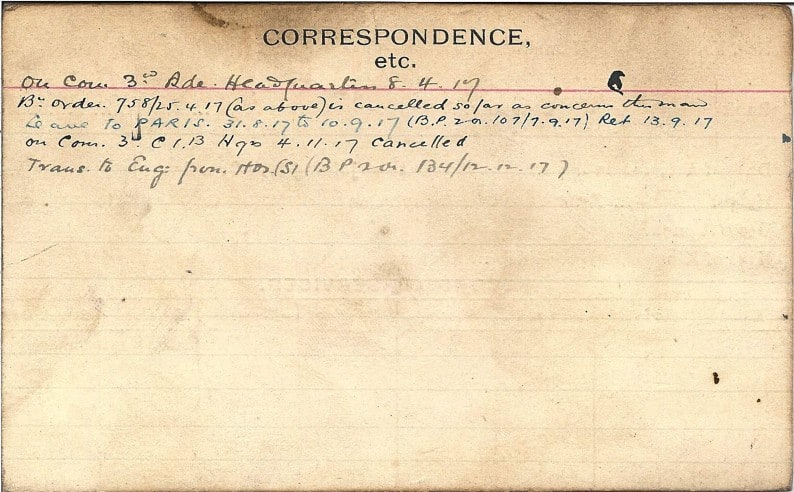 CORRESPONDENCE,
etc.
On Com. 3rd Bde. Headquarters 8. 4. 17
Bn order. 758/25.4.17 (as above) is cancelled so far as concerns this man
Leave to PARIS. 31.8.17 to 10.9.17 (B.P. 2 or. 107/7.9.17) Ret 13.9.17
on Com. 3rd C.I.B Hqrs 4.11.17 cancelled
Trans. to Eng. from Hos. (S) (B.P. 2 or. 134/12.12.17)